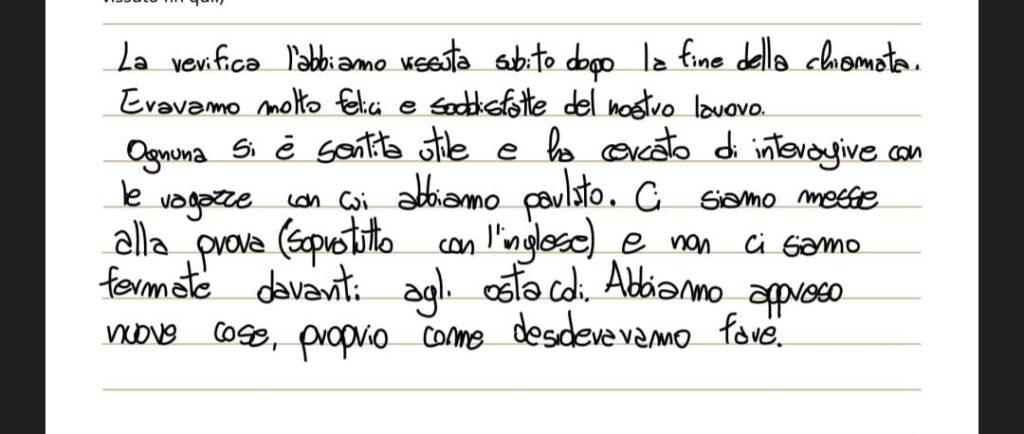 La verifica l'abbiamo vissuta subito dopo la fine della chiamata.
Eravamo molto felici e soddisfatte del nostro lavoro.
Ognuna si è sentita utile e ha cercato di interagire con
le ragazze con cui abbiamo parlato. Ci siamo messe
alla prova (soprattutto con l'inglese) e non ci siamo
fermate davanti agli ostacoli. Abbiamo appreso
nuove cose, proprio come desideravamo fare.